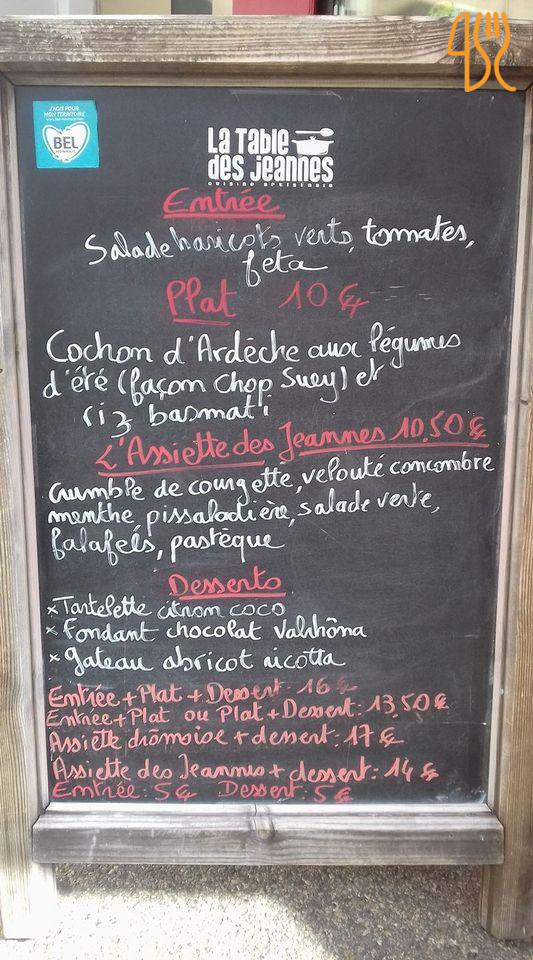 J'AGIS POUR
MON TERRITOIRE
BEL
LA TABLE
DES JEANNES
CUISINE ARTISANALE
Entrée
Salade haricots verts, tomates,
feta
Plat 10 €
Cochon d'Ardèche aux légumes
d'été (façon Chop Suey) et
riz basmati
L'Assiette des Jeannes 10.50 €
Crumble de courgette, velouté concombre
menthe, pissaladière, salade verte,
falafels, pastèque
Desserts
x Tartelette citron coco
x Fondant chocolat Valrhôna
x gateau abricot ricotta
Entrée + Plat + Dessert : 16 €
Entrée + Plat ou Plat + Dessert : 13.50 €
Assiette drômoise + dessert : 17 €
Assiette des Jeannes + dessert : 14 €
Entrée : 5 € Dessert : 5 €